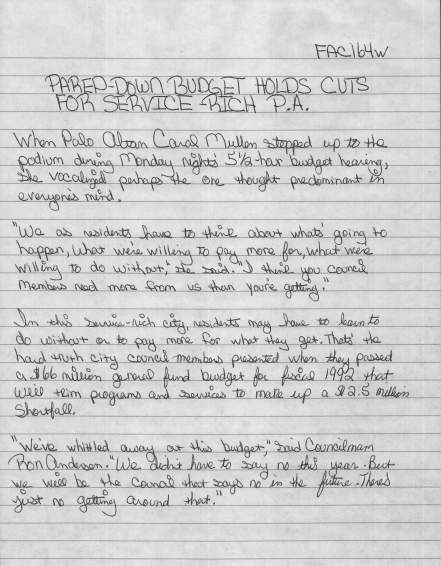 FAC164W
PARED-DOWN BUDGET HOLDS CUTS
FOR SERVICE-RICH P.A.
When Palo Altan Carol Mullen stepped up to the
podium during Monday night's 5½-hour budget hearing,
she vocalized perhaps the one thought predominant in
everyone's mind.
"We as residents have to think about what's going to
happen, what we're willing to pay more for, what we're
willing to do without," she said. "I think you council
members need more from us than you're getting."
In this service-rich city, residents may have to learn to
do without or to pay more for what they get. That's the
hard truth city council members presented when they passed
a $66 million general fund budget for fiscal 1992 that
will trim programs and services to make up a $2.5 million
shortfall.
"We've whittled away at this budget," said Councilman
Ron Anderson. "We didn't have to say no this year. But
we will be the Council that says no in the future. There's
just no getting around that."